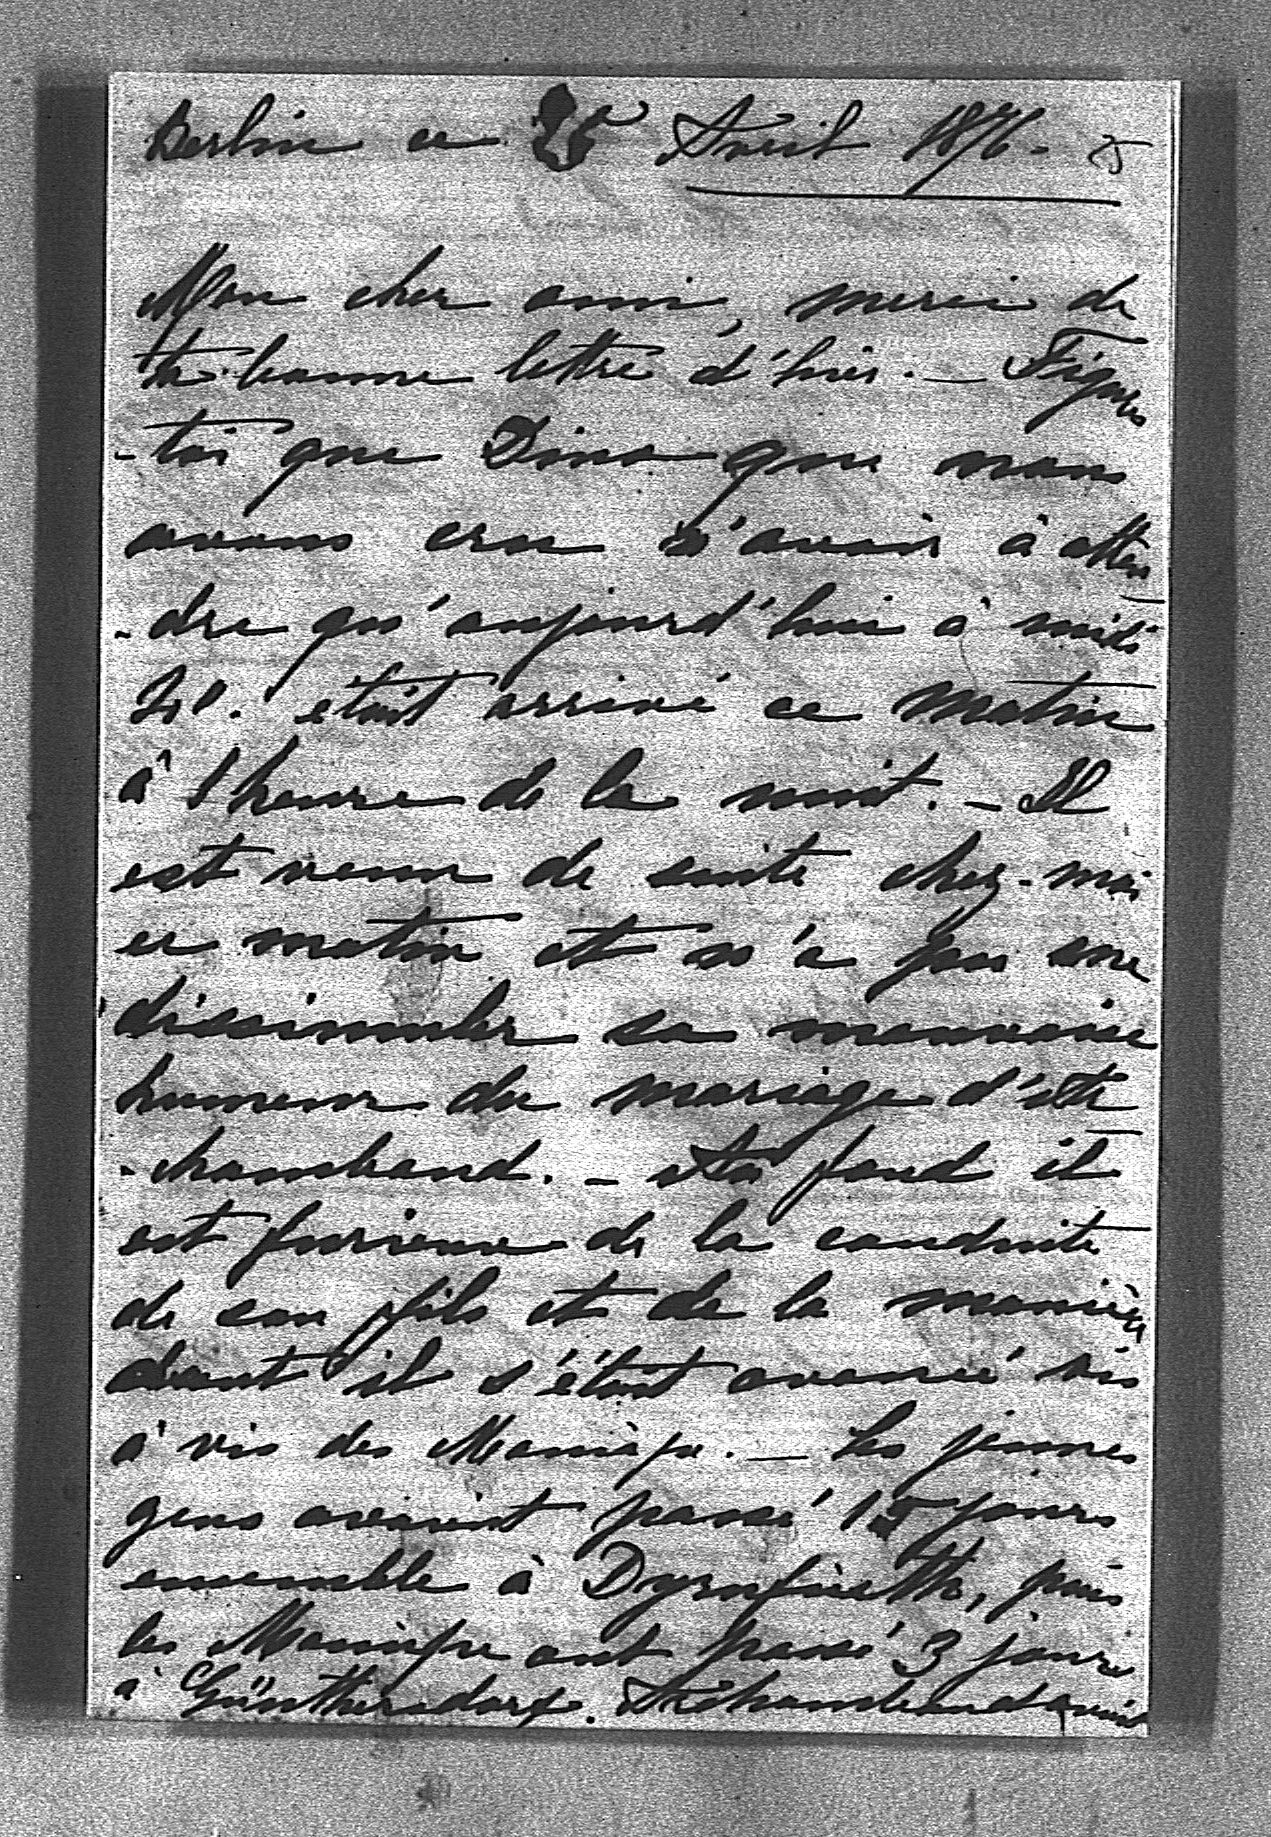 Berlin ce 25 Avril 1876.
Mon cher ami, merci de
ta bonne lettre d'hier. — Figures
-toi que Dino que nous
avons cru n'avoir à atten
-dre qu'aujourd'hui à midi
était arrivé ce matin
à 1 heure de la nuit. — Il
est venu de suite chez-moi
ce matin et n'a pas
dissimuler sa mauvaise
humeur du mariage d'Ar
-chambaud. — Au fond il
est furieux de la conduite
de son fils et de la manière
dont il s'était avancé vis
à vis des — Les jeunes
gens avaient passé 15 jours
ensemble à puis
les ont passé 3 jours
à Günthersdorf. Archambaud